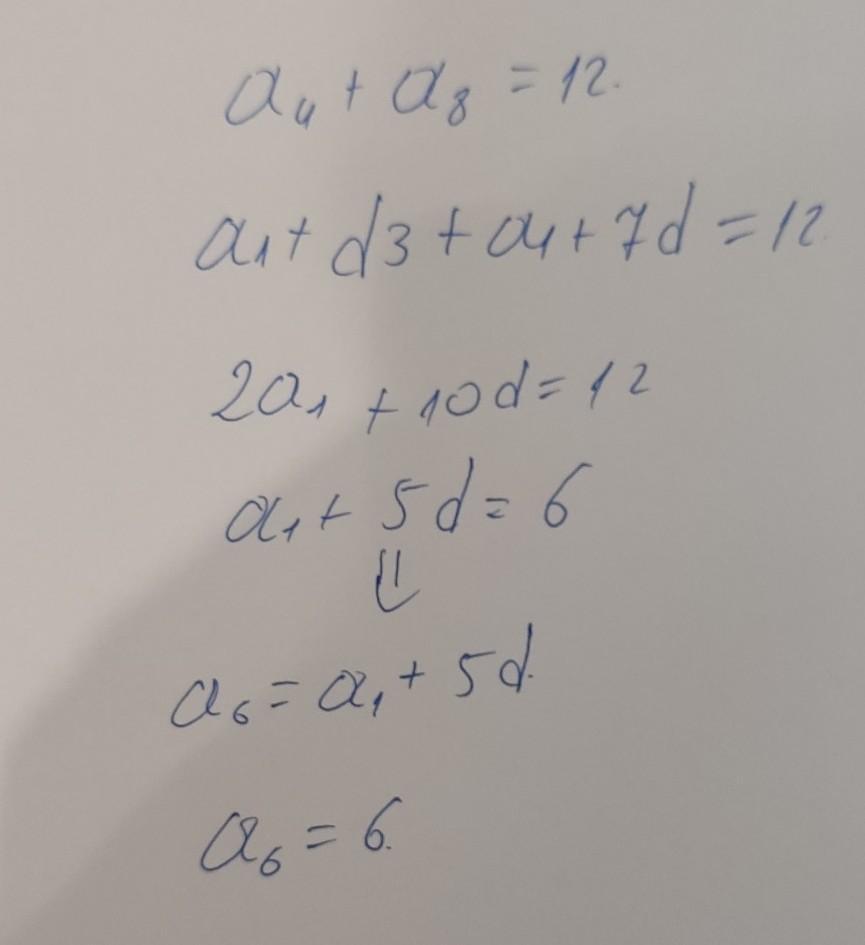 a₄ + a₈ = 12.
a₁ + d3 + a₁ + 7d = 12
2a₁ + 10d = 12
a₁ + 5d = 6
⇓
a₆ = a₁ + 5d.
a₆ = 6.